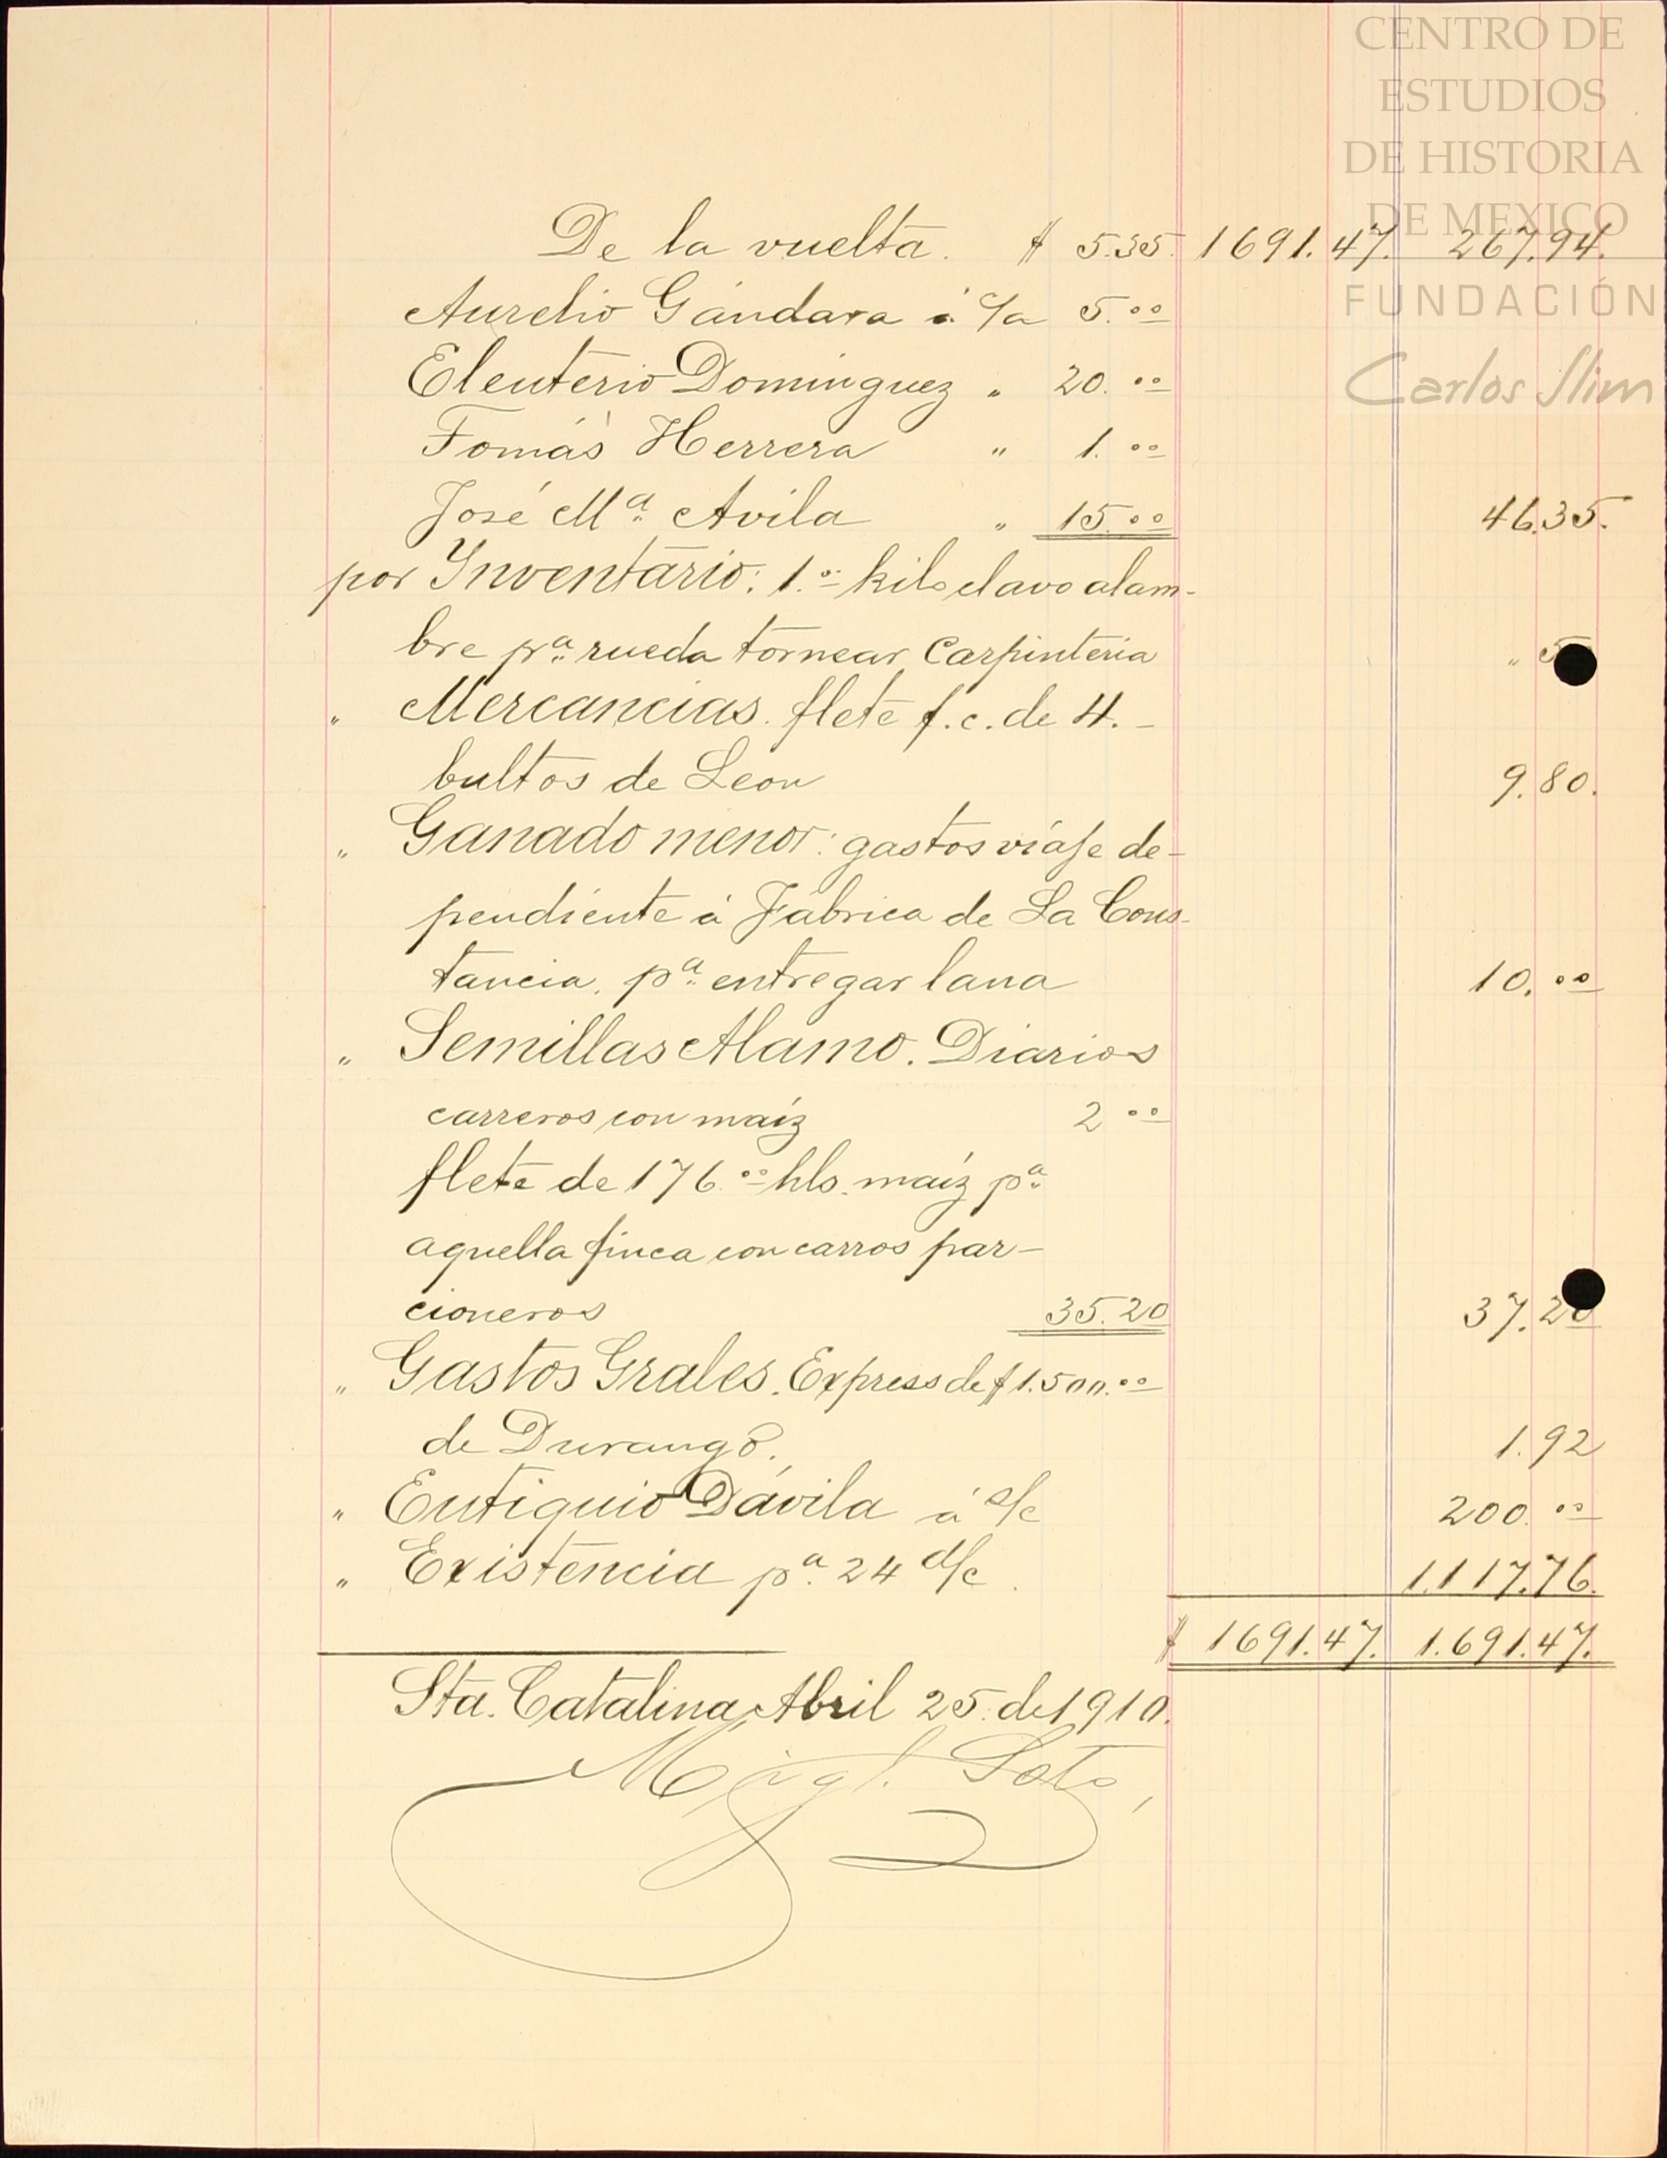 CENTRO DE
ESTUDIOS
DE HISTORIA
DE MEXICO
FUNDACIÓN
Carlos Slim
De la vuelta. $ 5.35. 1691.47. 267.94.
Aurelio Gándara á c/a 5.oo
Eleuterio Dominguez " 20.oo
Tomás Herrera " 1.oo
José Ma. Avila " 15.oo 46.35.
por Inventario: 1.oo kilo clavo alam-
bre pa. rueda tornear Carpinteria " 5
" Mercancias. flete f.c. de 4.-
bultos de Leon 9.80.
" Ganado menor: gastos viaje de-
pendiente á Fábrica de La Cons-
tancia, pa. entregar lana 10.oo
" Semillas Alamo. Diarios
carreros con maíz 2 oo
flete de 176.oo hls. maíz pa.
aquella finca con carros par-
cioneros 35.20 37.20
" Gastos Grales. Express de $1.500.oo
de Durango. 1.92
" Eutiquio Dávila á s/c 200.oo
" Existencia pa. 24 d/c. 1.117.76.
$ 1691.47. 1.691.47.
Sta. Catalina Abril 25. de 1910.
Migl. Soto,